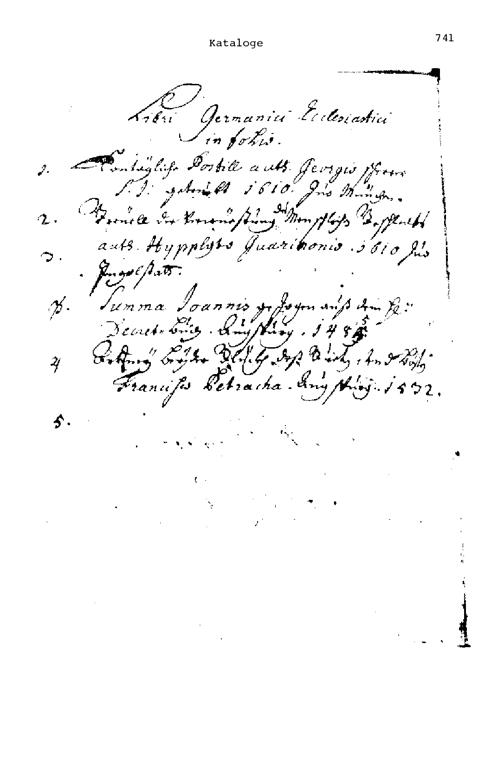 741
Kataloge
Libri Germanici Ecclesiastici
in folio.
1. Sontägliche Postill auth. Georgio
S. J. getruckt 1610. Zue München.
2. Greüell der Verwüestung Menschlichs Geschlechts
3. auth. Hyppolyto Guarinonio. 1610 Zue
Ingolstatt.
Summa Joannis gezogen auß dem
Decret buech. Augspurg. 1485
4 deß Guetz und Böß
Francisco Petracha. Augspurg. 1532.
5.